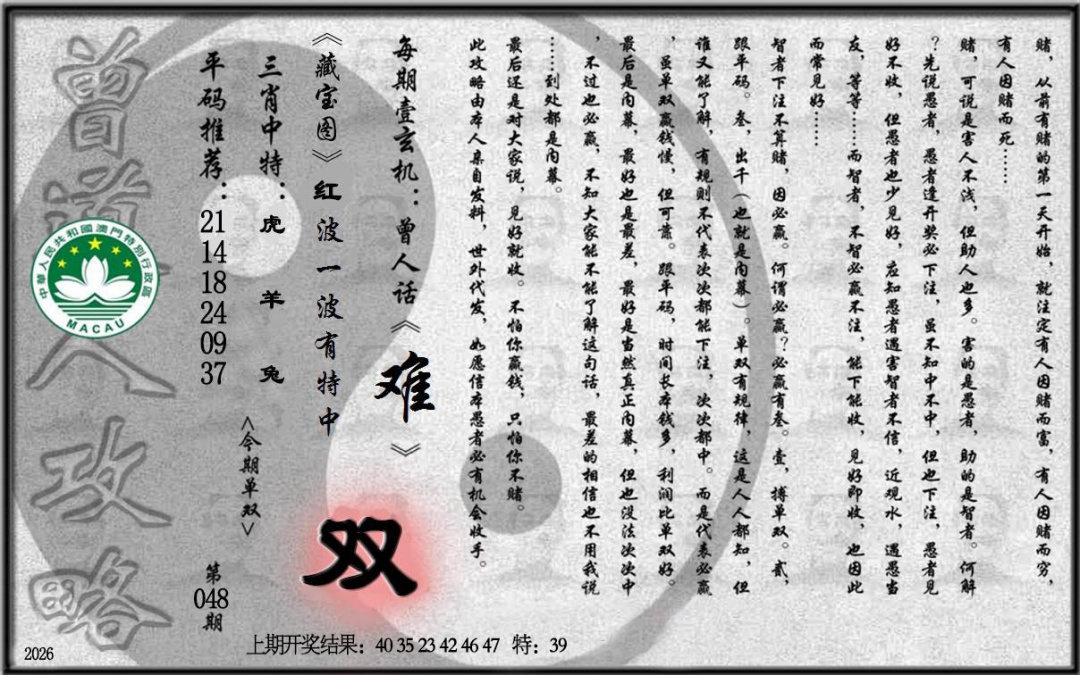 赌，从前有赌的第一天开始，就注定有人因赌而富，有人因赌而穷，
有人因赌而死……
赌，可说是害人不浅，但助人也多。害的是愚者，助的是智者。何解
？先说愚者，愚者逢开奖必下注，虽不知中不中，但也下注，愚者见
好不收，但愚者也少见好，应知愚者遇害智者不信，近观水，遇愚当
友，等等……而智者，不智必赢不注，能下能收，见好即收，也因此
而常见好……
智者下注不算赌，因必赢。何谓必赢？必赢有叁。壹，搏单双。贰，
跟平码。叁，出千（也就是内幕）。单双有规律，这是人人都知，但
谁又能了解，有规则不代表次次都能下注，次次都中。而是代表必赢
，虽单双赢钱慢，但可靠。跟平码，时间长本钱多，利润比单双好。
最后是内幕，最好也是最差，最好是当然真正内幕，但也没法次次中
，不过也必赢，不知大家能不能了解这句话，最差的相信也不用我说
……到处都是内幕。
最后还是对大家说，见好就收。不怕你赢钱，只怕你不赌。
此攻略由本人亲自发料，世外代发，如愿信本愚者必有机会收手。
每期壹玄机：曾人话《难》
《藏宝图》红波一波有特中
双
三肖中特：虎 羊 兔
<今期单双>
平码推荐：21 14 18 24 09 37
第048期
曾道人攻略
中華人民共和國澳門特別行政區
MACAU
上期开奖结果：40 35 23 42 46 47 特：39
2026